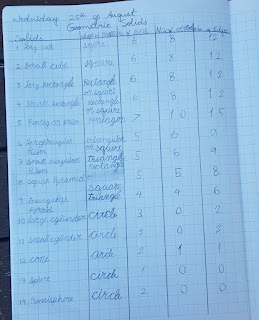 Wednesday 25th of August
Geometric Solids
Solids
1. big cube square 6 8 12
2. Small cube square 6 8 12
3. long rectangle Rectangle or square 6 8 12
4. Small rectangle rectangle or square 6 8 12
5. 7 10 15
6. prism triangular or square 5 6 9
7. Small prism triangle rectangle 5 6 9
8. square pyramid 5 5 8
square
9. triangular triangle 4 4 6
10. large cylinder circle 3 0 2
11. small cylinder circle 3 0 2
12. cone circle 2 1 1
13. sphere circle 1 0 0
14. hemisphere circle 2 0 0